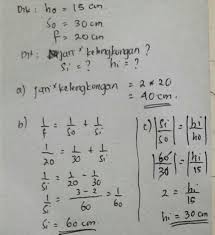 Dik : ho = 15 cm
So = 30 cm
f = 20 cm
Dit : jari² kelengkungan ?
Si = ? hi = ?
a) jari² kelengkungan = 2 × 20
= 40 cm.
b) 1/f = 1/So + 1/Si
1/20 = 1/30 + 1/Si
1/Si = 1/20 - 1/30
1/Si = 3-2/60 = 1/60
Si = 60 cm
c) |Si/So| = |hi/ho|
|60/30| = |hi/15|
2 = hi/15
hi = 30 cm